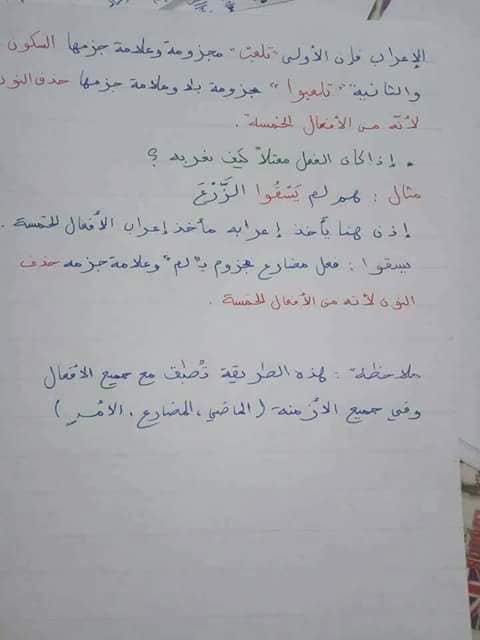 الإعراب فإن الأولى "تلعبْ" مجزومة وعلامة جزمها السكون
والثانية "تلعبوا" مجزومة بلا وعلامة جزمها حذف النون
لأنّه من الأفعال الخمسة.
• إذا كان الفعل معتلاً كيف نعربه ؟
مثال : هم لم يَسْقُوا الزَّرْعَ
إذن هنا يأخذ إعرابه مأخذ إعراب الأفعال الخمسة.
يسقوا : فعل مضارع مجزوم بـ"لم" وعلامة جزمه حذف
النون لأنه من الأفعال الخمسة.
ملاحظة : هذه الطريقة تُطبق مع جميع الأفعال
وفي جميع الأزمنة (الماضي، المضارع، الأمر)